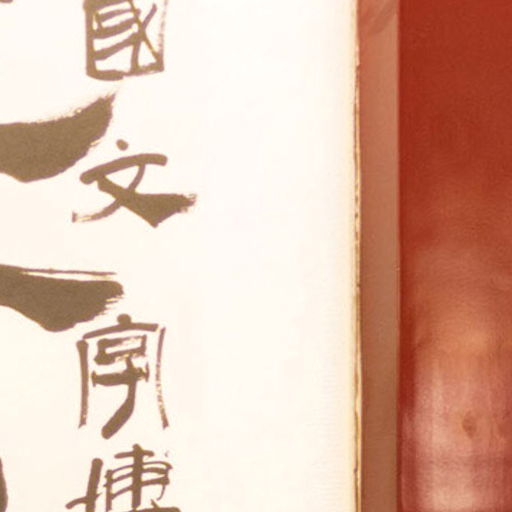 國文字博